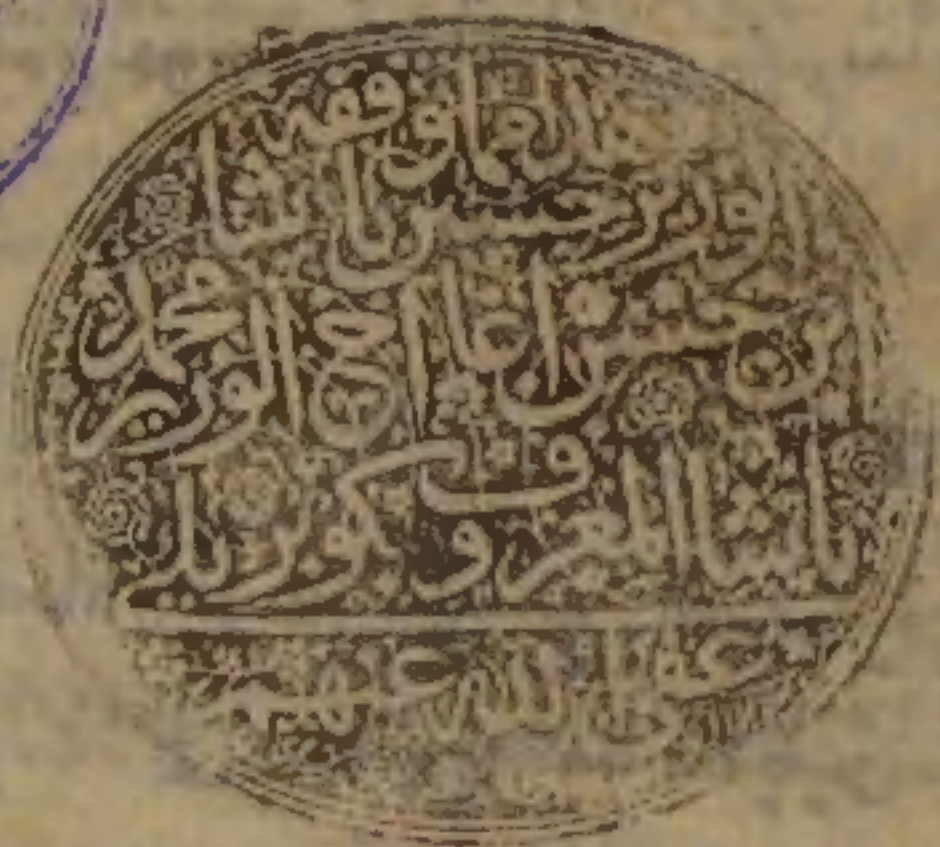 هذا مما وقفه
الوزير حسين باشا
ابن حسن اغا اخي الوزير محمد
باشا المعروف بكوبريلي
عفا الله عنهم